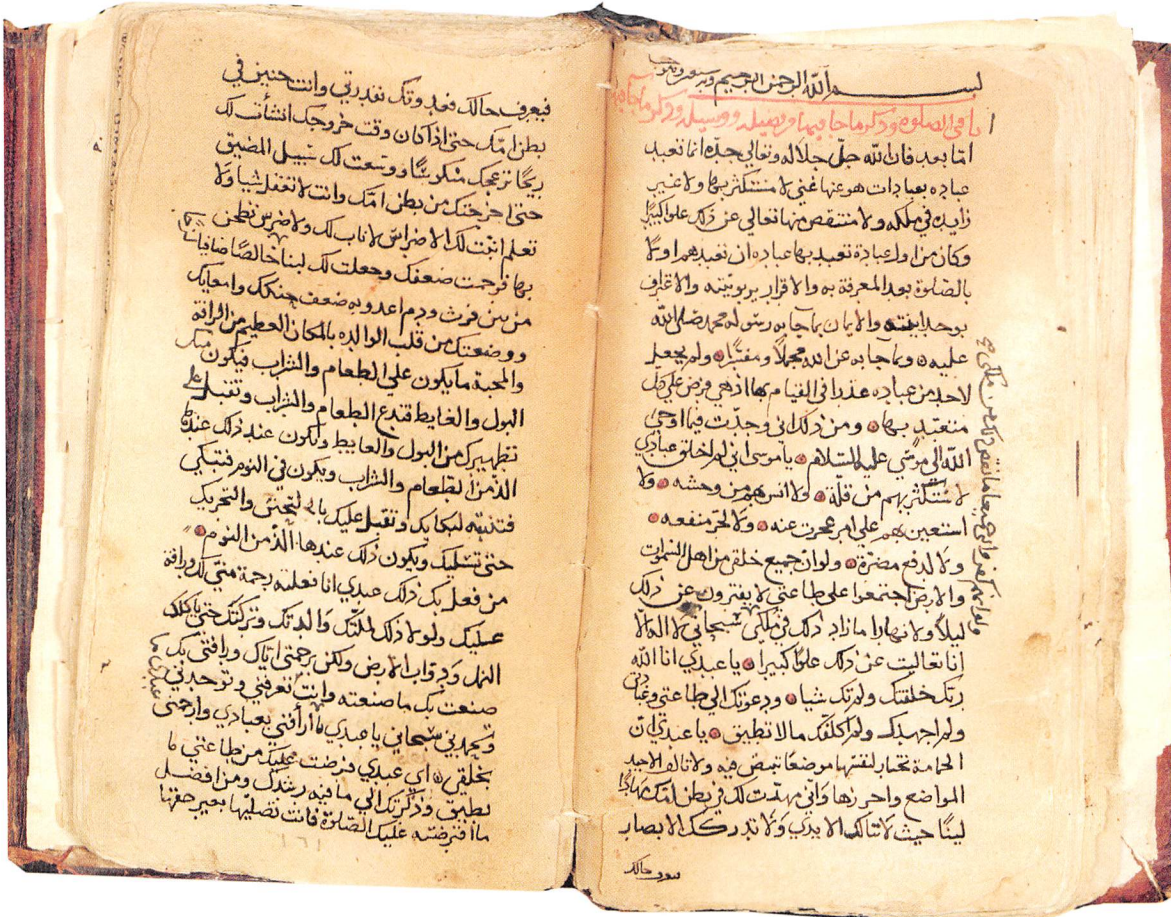 بسم الله الرحمن الرحيم وبه
باب في الصلوة وذكر ما جا فيها وذكر ما جا
اما بعد فان الله جل جلاله وتعالى جده انما تعبد
عباده بعبادات هو عنها غني لا متكثر بها ولا غير
زايده في ملكه ولا منتقص منها تعالى عن ذلك علوا كبيرا
وكان من اول عبادة تعبد بها عباده ان تعبدهم اولا
بالصلوة بعد المعرفة به والاقرار بربوبيته والاعتراف
بوحدانيته والايمان بما جا به رسوله محمد صلى الله
عليه وبما جا به عن الله مجملا ومفسرا ولم يجعل
لاحد من عباده عذرا في القيام بها اذ هي فرض على كل
متعبد بها ومن ذلك اني وجدت فيما اوحى
الله الى موسى عليه السلام يا موسى اني لم اخلق عبادي
لاستكثر بهم من قلة ولا انس بهم من وحشه ولا
استعين بهم على امر عجزت عنه ولا لجر منفعه
ولا لدفع مضرة ولو ان جميع خلقي من اهل السموات
والارض اجتمعوا على طاعتي لا يفترون عن ذلك
ليلا ولا نهارا ما زاد ذلك في ملكي سبحاني لا اله الا
انا تعاليت عن ذلك علوا كبيرا يا عبدي انا الله
ربك خلقتك ولم تك شيا ودعوتك الى طاعتي وعبادتي
ولم اجهدك ولم اكلفك ما لا تطيق يا عبدي ان
الحمامة تختار لنفسها موضعا تبيض فيه ولا تالف الا جيد
المواضع واحرزها واني مهدت لك في بطن امك مهادا
لينا حيث لا تنالك الايدي ولا تدركك الابصار
ولو انهم كفروا بي جميعا ما نقص ذلك من ملكي
فيعرف حالك فغذوتك بقدرتي وانت جنين في
بطن امك حتى اذا كان وقت خروجك انشأت لك
ريحا تزعجك منكوسا ووسعت لك سبيل المضيق
حتى اخرجتك من بطن امك وانت لا تعقل شيا ولا
تعلم انبت لك الاضراس لا ناب لك ولا ضرس تطحن
بها فرحمت ضعفك وجعلت لك لبنا خالصا صافيا
من بين فرث ودم اغدوبه ضعف حنكك وامعايك
ووضعتك من قلب الوالده بالمكان العظيم من الرافة
والمحبة ما يكون على الطعام والشراب فيكون منك
البول والغايط فتدع الطعام والشراب وتقبل على
تطهيرك من البول والغايط ويكون عند ذلك عندها
الذ من الطعام والشراب ويكون في النوم فتبكي
فتنتبه لبكايك وتقبل عليك بالتحنن والتحريك
حتى تسليك ويكون ذلك عندها الذ من النوم
من فعل بك ذلك عبدي انا فعلته رحمة مني لك ورافة
عليك ولولا ذلك لملتك والدتك وتركتك حتى ياكلك
النمل ودواب الارض ولكن برحمتي اياك ورافتي بك
صنعت بك ما صنعته وانت تعرفني وتوحدني
وتحمدني سبحاني يا عبدي ما أرأفني بعبادي وارحمني
بخلقي اي عبدي فرضت عليك من طاعتي ما
تطيق وذكرتك الى ما فيه رشدك ومن افضل
ما افترضته عليك الصلوة فانت تصليها بغير حقها